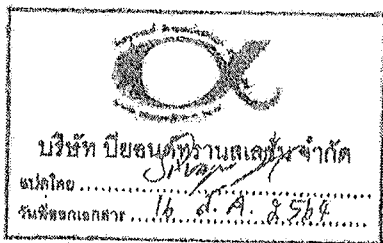 บริษัท บียอนด์ทรานสเลชั่น จำกัด
แปลโดย
วันที่ออกเอกสาร 16 ส.ค. 2564